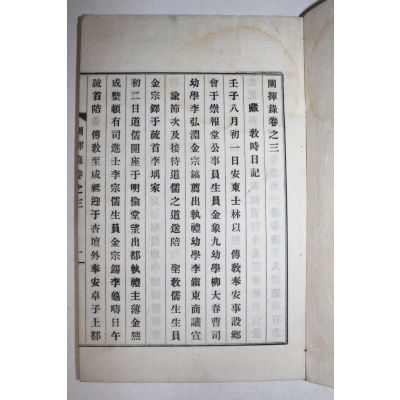 闡揮錄卷之三
藏 敎時日記
壬子八月初一日安東士林以 傳敎奉安事設鄕
會于崇報堂公事員生員金象九幼學柳大春曹司
幼學李弘淵金宗鎬薦出執禮幼學李鎭東商議宣
諭節次及接待道儒之道送陪 聖敎儒生生員
金宗鐸于疏首李瑀家
初二日道儒開座于明倫堂望出都執禮主薄金熙
成整頓有司進士李宗儒生員金宗錫李龜疇日午
疏首陪 傳敎至成祗迎于杏壇外奉安卓子上都
闡揮錄卷之三 一